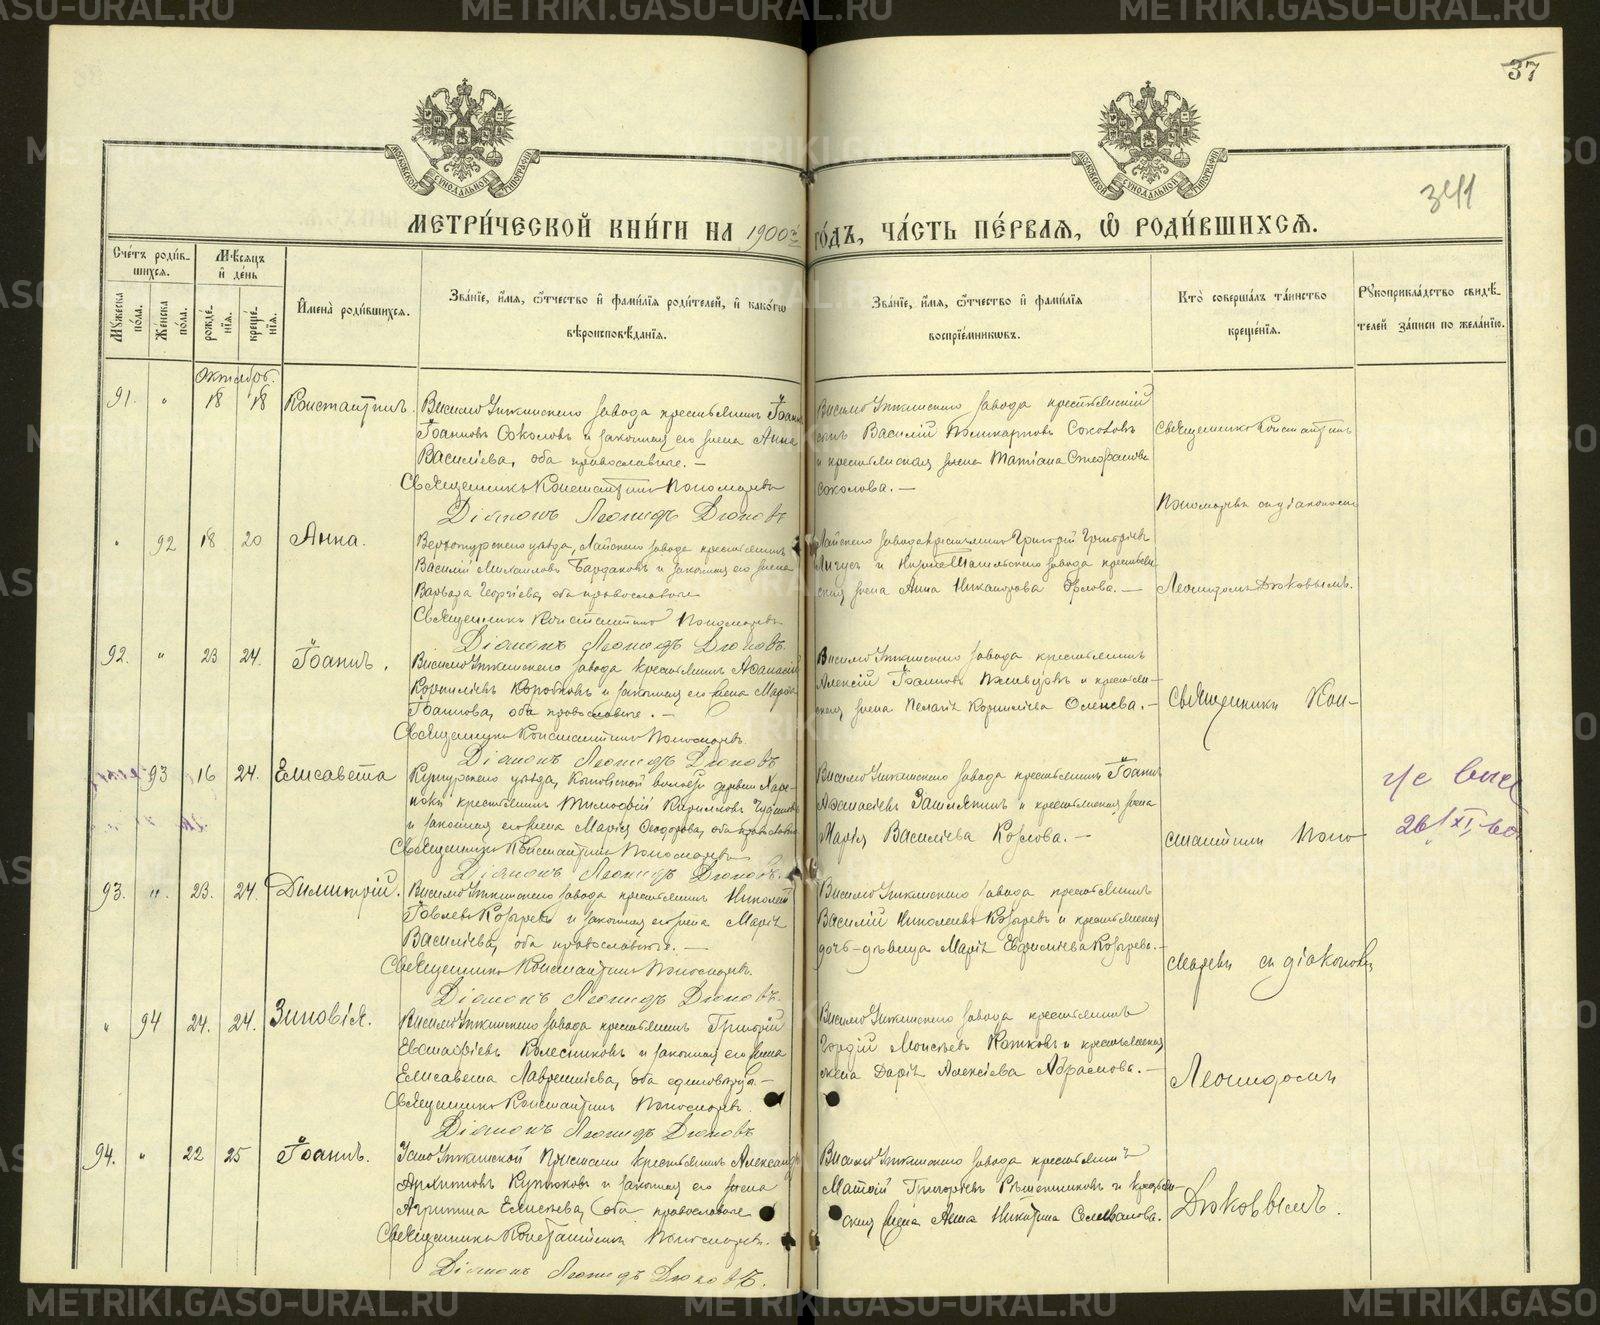 METRIKI.GASO-URAL.RU
37
МОСКОВСКОЙ СѴНОДАЛЬНОЙ ТИПОГРАФІИ
МОСКОВСКОЙ СѴНОДАЛЬНОЙ ТИПОГРАФІИ
341
МЕТРИ́ЧЕСКОЙ КНИ́ГИ НА 1900й ГО́ДЪ, ЧА́СТЬ ПЕ́РВАЯ, Ѡ҆ РОДИ́ВШИХСѦ.
Сче́тъ роди́в-
шихся.
Мꙋ́жеска по́ла.
Же́нска по́ла.
Мѣ́сяцъ и҆ де́нь
рожде́-
нїя.
креще́-
нїя.
И҆мена̀ роди́вшихся.
Зва́нїе, и҆́мя, ѻ҆́тчество и҆ фами́лїя роди́телей, и҆ како́гѡ
вѣроисповѣ́данїя.
Зва́нїе, и҆́мя, ѻ҆́тчество и҆ фами́лїя
воспрїе́мникѡвъ.
Кто̀ соверша́лъ та́инство
креще́нїя.
Рꙋкоприкла́дство свидѣ́-
телей за́писи по жела́нїю.
Октябрь.
91. " 18 18 Константинъ.
Висимо Уткинскаго завода крестьянинъ Іоаннъ
Іоанновъ Соколовъ и законная его жена Анна
Васильева, оба православные. —
Священникъ Константинъ Пономаревъ
Діаконъ Леонидъ Дюковъ
Висимо Уткинскаго завода крестьянскій
сынъ Василій Поликарповъ Соколовъ
и крестьянская жена Татіана Стефанова
Соколова. —
Священникъ Константинъ
Пономаревъ съ діакономъ
Леонидомъ Дюковымъ.
" 92 18 20 Анна.
Верхотурскаго уѣзда, Лайскаго завода крестьянинъ
Василій Михаиловъ Бардаковъ и законная его жена
Варвара Георгіева, оба православные
Священникъ Константинъ Пономаревъ
Діаконъ Леонидъ Дюковъ.
Лайскаго завода крестьянинъ Григорій Григорьевъ
и Нижне Тагильскаго завода крестьян-
ская жена Анна Никанорова Орлова. —
92. " 23 24. Іоаннъ.
Висимо Уткинскаго завода крестьянинъ Аѳанасій
Корниліевъ Коробковъ и законная его жена Марѳа
Іоаннова, оба православные. —
Священникъ Константинъ Пономаревъ.
Діаконъ Леонидъ Дюковъ
Висимо Уткинскаго завода крестьянинъ
Алексій Іоанновъ и крестьян-
ская жена Пелагія Корниліева —
Священникъ Кон-
" 93 16 24. Елисавета
Кунгурскаго уѣзда, волости деревни
крестьянинъ Тимоѳей Кирилловъ
и законная его жена Марія Ѳеодорова, оба православн.
Священникъ Константинъ Пономаревъ
Діаконъ Леонидъ Дюковъ.
Висимо Уткинскаго завода крестьянинъ Іоаннъ
Аѳанасіевъ и крестьянская жена
Марія Васильева Козлова. —
стантинъ Поно-
26/XI-60
93. " 23. 24. Димитрій.
Висимо Уткинскаго завода крестьянинъ Николай
Іовлевъ Козыревъ и законная его жена Марія
Васильева, оба православные. —
Священникъ Константинъ Пономаревъ.
Діаконъ Леонидъ Дюковъ.
Висимо Уткинскаго завода крестьянинъ
Василій Николаевъ Козыревъ и крестьянская
дочь-дѣвица Марія Козырева. —
маревъ съ діакономъ
" 94 24. 24. Зиновія.
Висимо Уткинскаго завода крестьянинъ Григорій
Евстаѳіевъ Колесниковъ и законная его жена
Елисавета Лаврентіева, оба единовѣрцы. —
Священникъ Константинъ Пономаревъ.
Діаконъ Леонидъ Дюковъ
Висимо Уткинскаго завода крестьянинъ
Гордій Моисеевъ и крестьянская
жена Дарія Алексіева Абрамова. —
Леонидомъ
94. " 22 25 Іоаннъ.
Уткинской Пристани крестьянинъ Александръ
Архиповъ и законная его жена
Агрипина Елисеева, оба православные
Священникъ Константинъ Пономаревъ.
Діаконъ Леонидъ Дюковъ.
Висимо Уткинскаго завода крестьянинъ
Матѳій Григорьевъ Рѣшетниковъ и крестьян-
ская жена Анна Никитина Селиванова.
Дюковымъ.